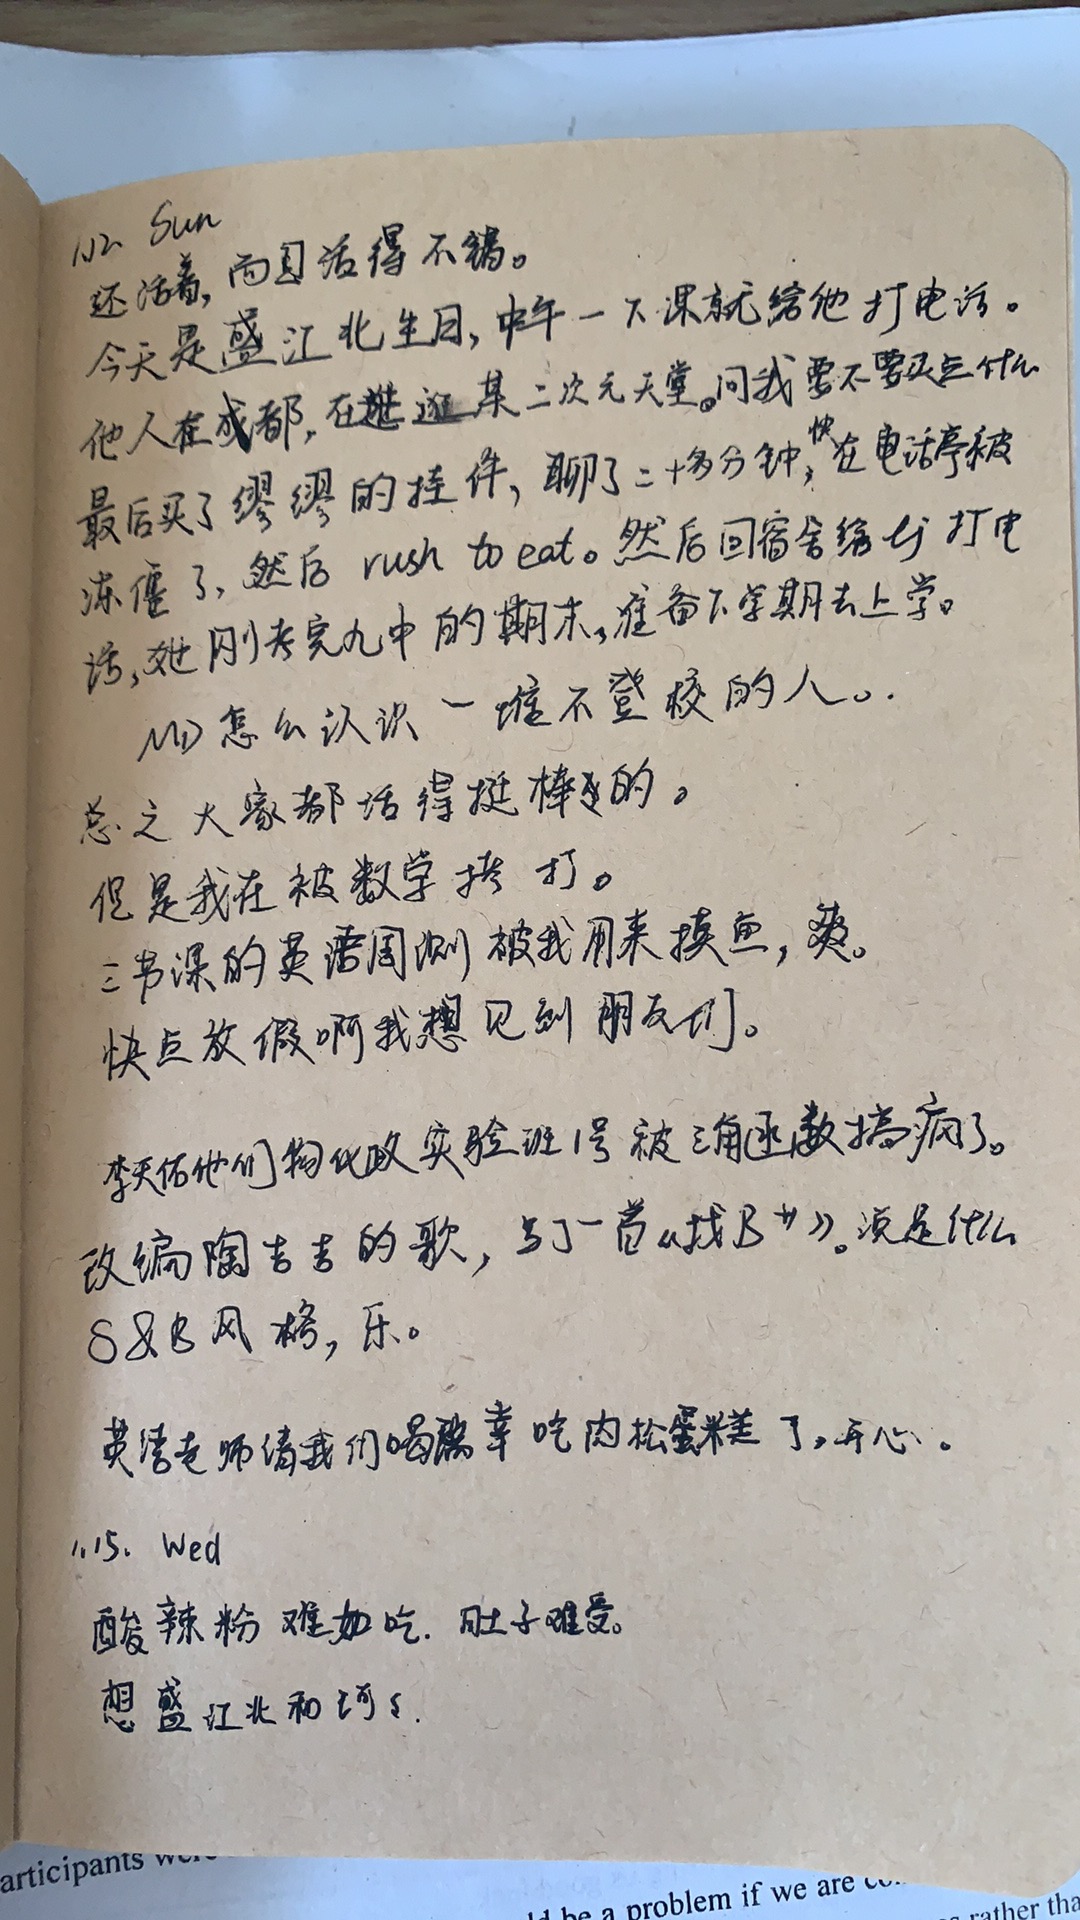 1.12 Sun
还活着，而且活得不错。
今天是盛江北生日，中午一下课就给他打电话。
他人在成都，在逛某二次元天堂。问我要不要买点什么
最后买了缪缪的挂件，聊了二十多分钟，快在电话亭被
冻僵了，然后 rush to eat。然后回宿舍给 打电
话，她刚考完九中的期末，准备下学期去上学。
怎么认识一堆不登校的人。
总之大家都活得挺棒的。
但是我在被数学拷打。
三节课的英语周测被我用来摸鱼，爽。
快点放假啊我想见到朋友们。
李天佑他们物化政实验班1号被三角函数搞疯了。
改编陶吉吉的歌，写了一首《找B》。说是什么
S&B风格，乐。
英语老师请我们喝瑞幸吃肉松蛋糕了，开心。
1.15. Wed
酸辣粉难如吃. 肚子难受。
想盛江北和
articipants were
ld be a problem if we are co
rather tha